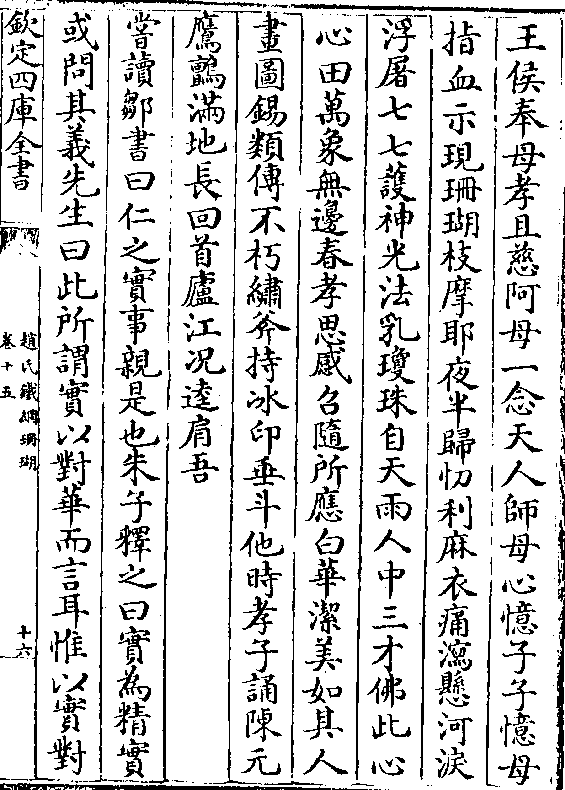 王侯奉母孝且慈阿母一念天人師母心憶子子憶母
指血示現珊瑚枝摩耶夜半歸忉利麻衣痛灑懸河淚
浮屠七七護神光法乳瓊珠自天雨人中三才佛此心
心田萬象無邊春孝思感召隨所應白華潔美如其人
畫圖錫類傳不朽繡斧持冰印垂斗他時孝子誦陳元
鷹鸇滿地長回首廬江况逵肩吾
嘗讀鄒書曰仁之實事親是也朱子釋之曰實為精實
或問其義先生曰此所謂實以對華而言耳惟以實對
欽定四庫全書
趙氏鐵網珊瑚
卷十五
十六